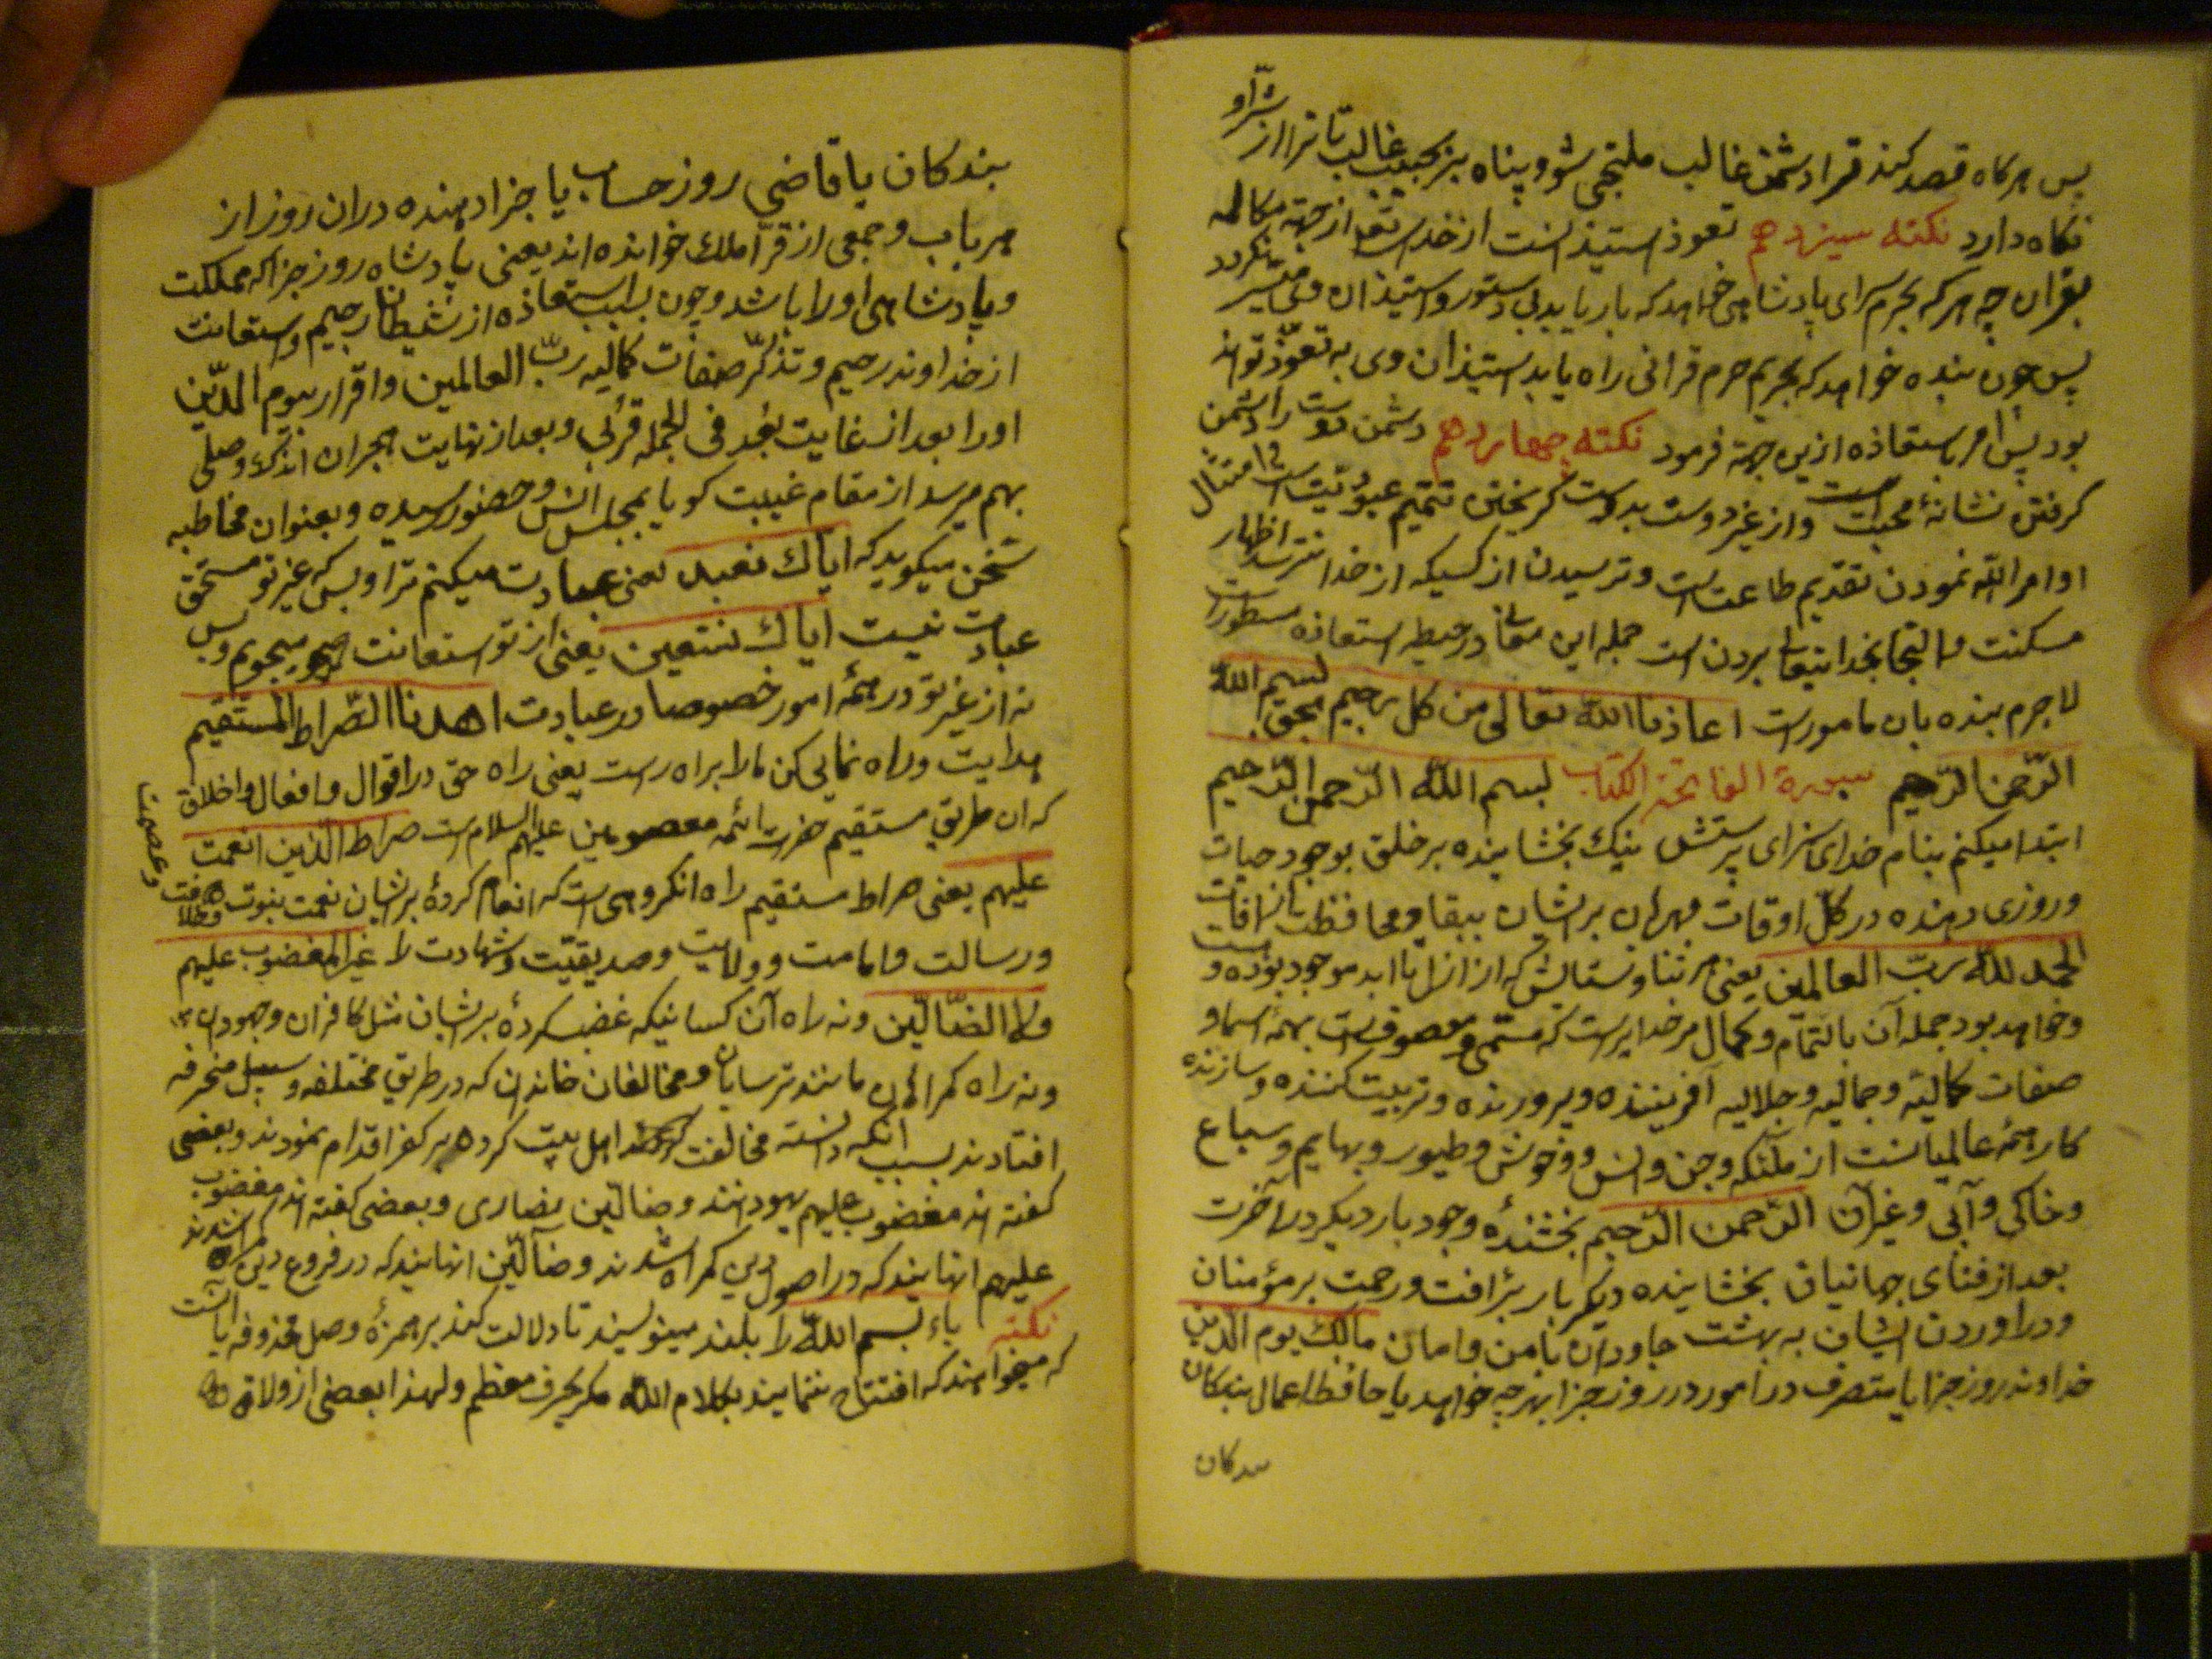 پس هرکاه قصد کند قرا دشمن غالب ملتجی شو و پناه بر بحبیب غالب تا ترا از شر او
نکاه دارد نکته سیزدهم تعوذ استیذانست از خدای تع از جهة مکالمه
بقران چه هر که بحرم سرای پادشاهی خواهد که بار یابد بی دستور و استیذان وی میسّر نکردد
پس چون بنده خواهد که بحریم حرم قرانی راه یابد استیذان وی به تعوّذ تواند
بود پس امر باستعاذه ازین جهة فرمود نکته چهاردهم دشمن دوست را دشمن
کرفتن نشانهٔ محبت است و از غیر دوست بدوست کریختن تتمیم عبودیّت است و امتثال
اوامر الله نمودن تقدیم طاعتست و ترسیدن از کسیکه از خدا نترسد اظهار
مسکنت و التجا بخدایتعالی بردن است جمله این معانی در حیطه استعاذه مسطورست
لا جرم بنده بان مامورست اعاذنا الله تعالی من کل رجیم بحق بسم الله
الرّحمن الرّحیم سورة الفاتحة الکتاب بسم الله الرّحمن الرّحیم
ابتدا میکنم بنام خدای سزای پرستش نیک بخشاینده بر خلق بوجود حیات
و روزی دهنده در کلّ اوقات مهربان برایشان ببقا و محافظت از افات
الحمد لله ربّ العالمین یعنی هر ثنا و ستایش که از ازل تا ابد موجود بوده و هست
و خواهد بود جمله آن بالتّمام و کمال مر خدایراست که مسمّی و موصوفست بهمهٔ اسما و
صفات کمالیّه و جمالیه و جلالیه آفریننده و پرورنده و تربیت کننده و سازنده
کار همهٔ عالمیانست از ملئکه و جن و انس و وحوش و طیور و بهایم و سباع
و خاکی و آبی و غیر آن الرّحمن الرّحیم بخشندهٔ وجود بار دیکر در آخرت
بعد از فنای جهانیان بخشاینده دیکر بار برافت و رحمت بر مؤمنان
و دراوردن ایشان به بهشت جاودان با من و امان مالک یوم الدین
خداوند روز جزا یا متصرف در امور در روز جزا بهر چه خواهد یا حافظ اعمال بندکان
بندکان
بندکان یا قاضی روز حساب یا جزا دهنده دران روز از
هر باب و جمعی از قرّا ملک خوانده اند یعنی پادشاه روز جزا که مملکت
و پادشاهی اورا باشد و چون بسبب استعاذه از شیطان رجیم و استعانت
از خداوند رحیم و تذکّر صفات کمالیه ربّ العالمین و اقرار بیوم الدّین
اورا بعد از غایت بُعد فی الجمله قربی و بعد از نهایت هجران اندک وصلی
بهم میرسد از مقام غیبت کویا بمجلس انس و حضور رسیده و بعنوان مخاطبه
سخن میکوید که ایاک نعبد یعنی عبادت میکنم ترا و بس که غیر تو مستحق
عبادت نیست ایاک نستعین یعنی از تو استعانت میجویم و بس
نه از غیر تو در همهٔ امور خصوصا در عبادت اهدنا الصّراط المستقیم
هدایت و راه نمایی کن ما را براه راست یعنی راه حق در اقوال و افعال و اخلاق
که ان طریق مستقیم حضرت ائمه معصومین علیهم السلام است صراط الّذین انعمت
علیهم یعنی صراط مستقیم راه انکروهی است که انعام کردهٔ برایشان نعمت نبوت و خلافت و عصمت
و رسالت و امامت و ولایت و صدیقیّت و شهادت را غیر المغضوب علیهم
ولا الضّالّین و نه راه آن کسانیکه غضب کردهٔ برایشان مثل کافران و جهودان
و نه راه کمراهان مانند ترسایان و مخالفان خاندان که در طریق مختلفه و سبیل منحرفه
افتادند بسبب انکه دانسته مخالفت اهل بیت کرده بر کفر اقدام نمودند و بعضی
کفته اند مغضوب علیهم یهودانند و ضالّین نصاری و بعضی کفته اند مغضوب
علیهم انهایند که در اصول دین کمراه شدند و ضآلّین انهایند که در فروع دین کمراه شدند
نکته باء بسم الله را بلند مینویسند تا دلالت کند بر همزهٔ وصل محذوفه یا آنست
که میخواهند که افتتاح ننمایند بکلام الله مکر بحرف معظم و لهذا بعضی از ولاة